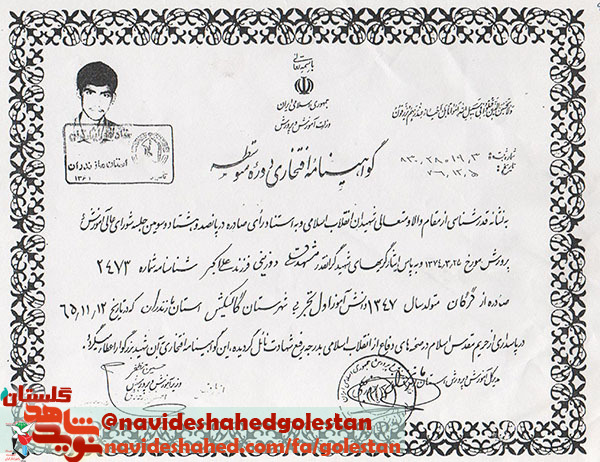 باسمه تعالی
جمهوری اسلامی ایران
وزارت آموزش و پرورش
شماره ثبت: ۸۳۰۲۸۰۱۹۰۳
تاریخ: ۷۶،۱۲،۵
استان مازندران
۱۳۶۱
گواهینامه افتخاری دوره متوسطه
به نشانه قدرشناسی از مقام والا و متعالی شهیدان انقلاب اسلامی و به استناد رأی صادره در پانصد و هشتاد و سومین جلسه شورای عالی آموزش و
پرورش مورخ ۱۳۷۴،۳،۲۵ و به پاس ایثارگریهای شهید گرانقدر فرزند علی اکبر شناسنامه شماره ۲۴۷۳
صادره از گرگان متولد سال ۱۳۴۷ دانش آموز اول تجربی شهرستان گالیکش استان مازندران که در تاریخ ۶۵،۱۱،۱۲
در پاسداری از حریم مقدس اسلام در صحنه های دفاع از انقلاب اسلامی به درجه رفیع شهادت نائل گردیده، این گواهینامه افتخاری به آن شهید بزرگوار اعطاء میگردد
وزیر آموزش و پرورش
مدیر کل آموزش و پرورش استان
گلستان
نوید شاهد
@navideshahedgolestan
navideshahed.com/fa/golestan